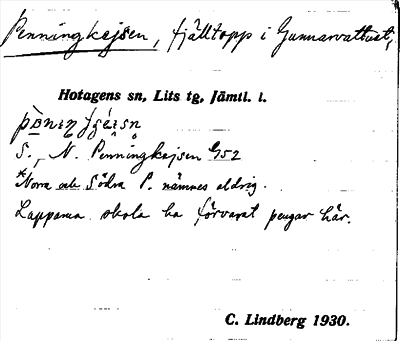 Penningkejsen, fjälltopp i Gunnarvattnet,
Hotagens sn, Lits tg, Jämtl. l.
S., N. Penningkejsen G52
*Norra och Södra P. nämnes aldrig.
Lapparna skola ha förvarat pengar här.
C. Lindberg 1930.